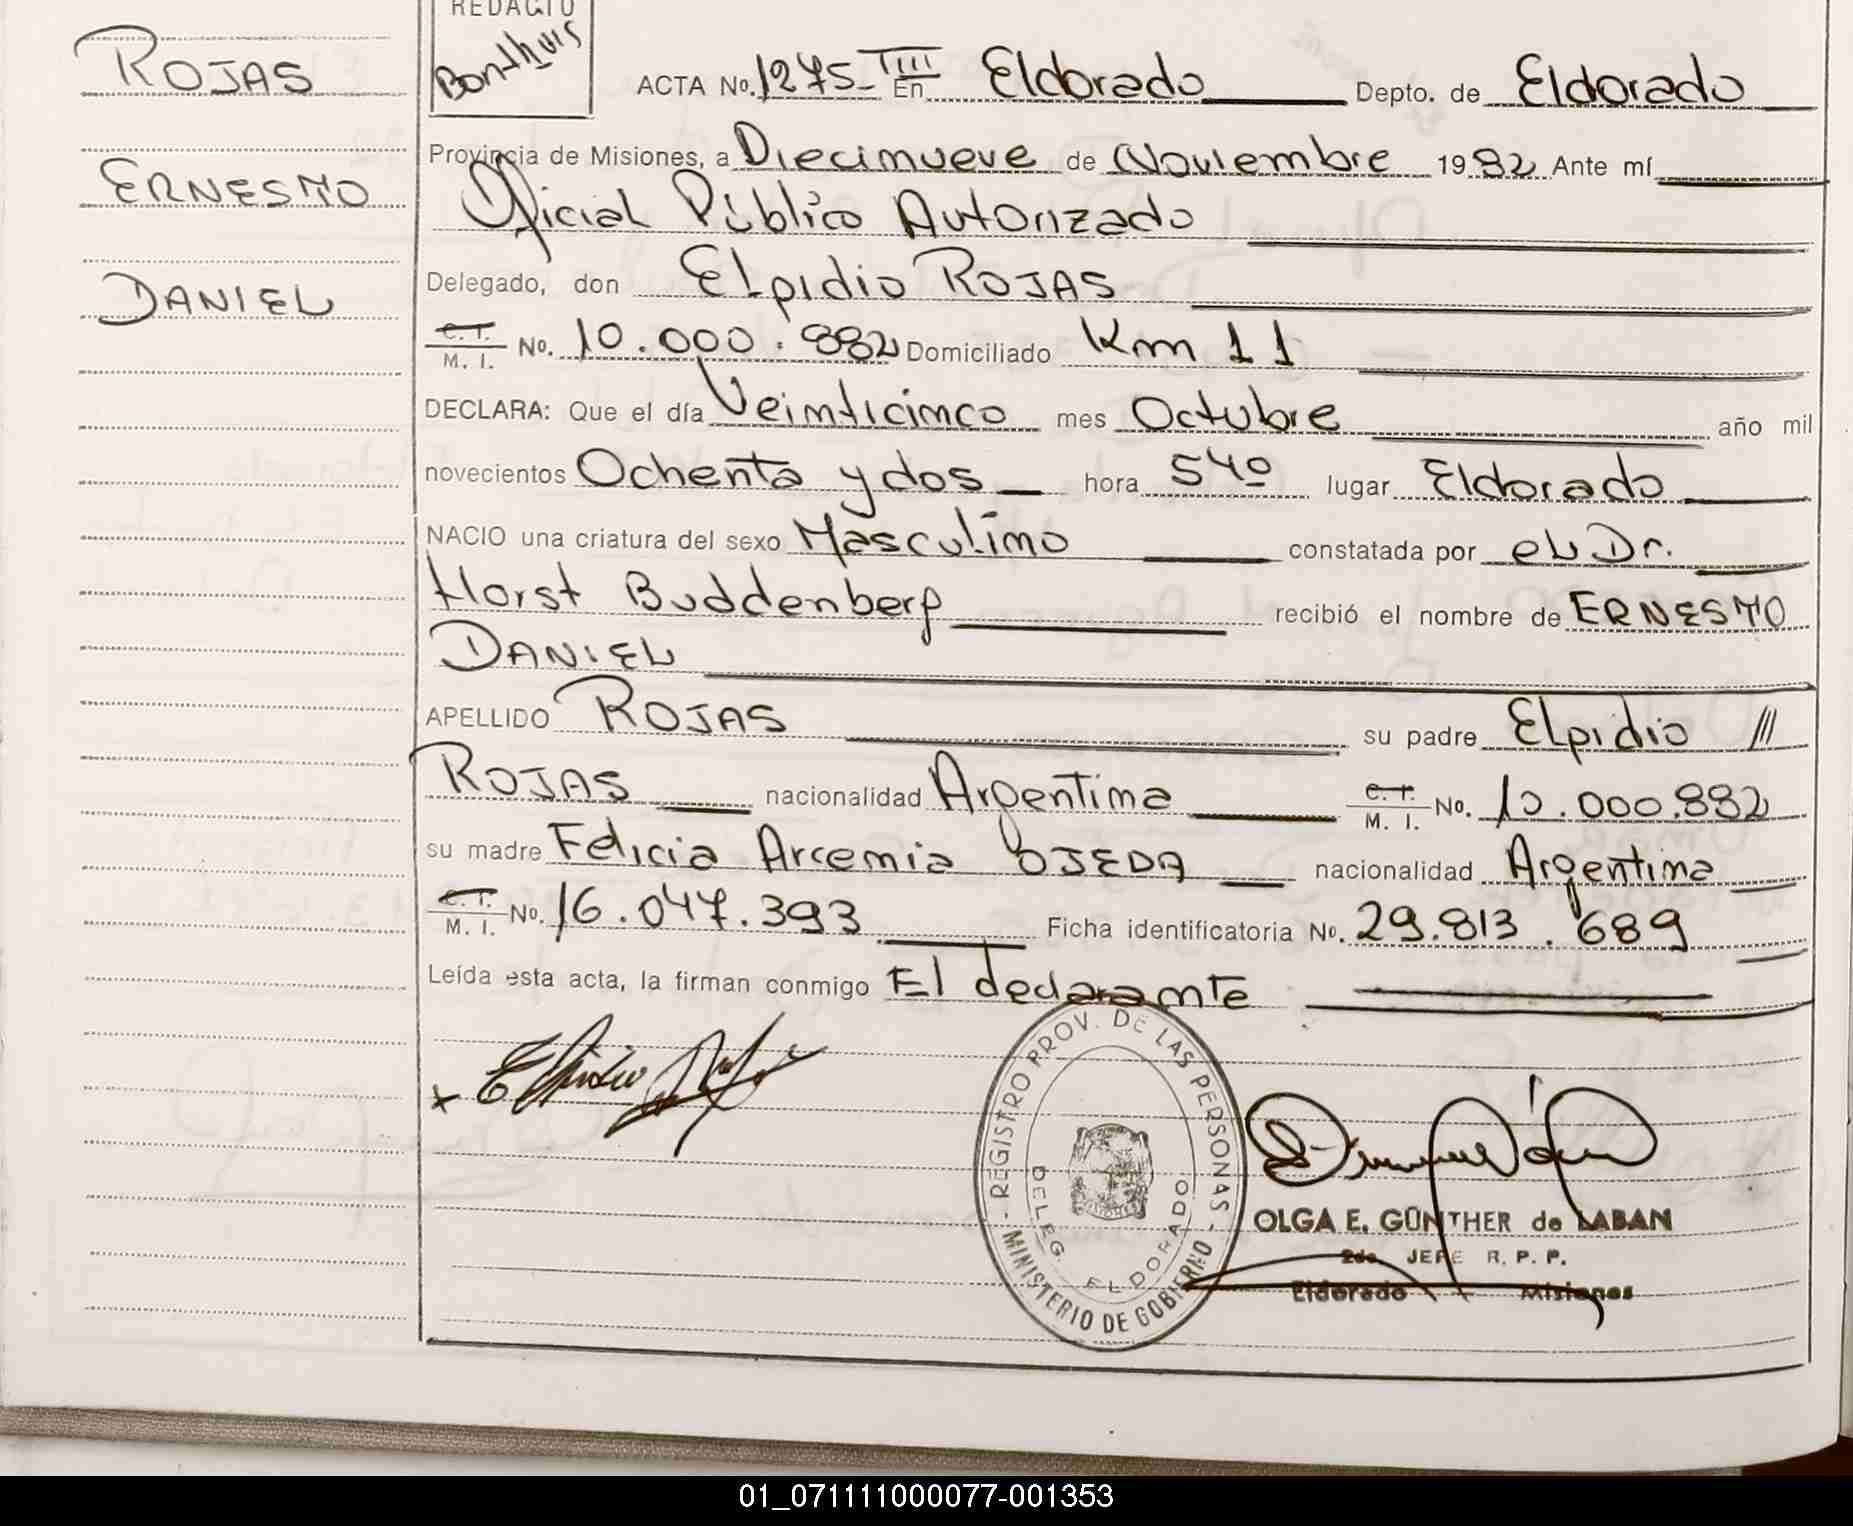 ROJAS
ERNESTO
DANIEL
REDACTO
Bonthuis
ACTA No. 1275- TIII En Eldorado Depto. de Eldorado
Provincia de Misiones, a Diecinueve de Noviembre 1982 Ante mí
Oficial Público Autorizado
Delegado, don Elpidio ROJAS
C. I. M. I. No. 10.000.882 Domiciliado Km 11
DECLARA: Que el día Veinticinco mes Octubre año mil
novecientos Ochenta y dos hora 5 40 lugar Eldorado
NACIO una criatura del sexo Masculino constatada por el Dr.
Horst Buddenberg recibió el nombre de ERNESTO
DANIEL
APELLIDO ROJAS su padre Elpidio
ROJAS nacionalidad Argentina C. I. M. I. No. 10.000.882
su madre Felicia Arcemia OJEDA nacionalidad Argentina
C. I. M. I. No. 16.047.393 Ficha identificatoria No. 29.813.689
Leída esta acta, la firman conmigo El declarante
REGISTRO PROV. DE LAS PERSONAS - MINISTERIO DE GOBIERNO -
DELEG. ELDORADO
OLGA E. GÜNTHER de LABAN
2do. JEFE R. P. P.
Eldorado Misiones
01_071111000077-001353